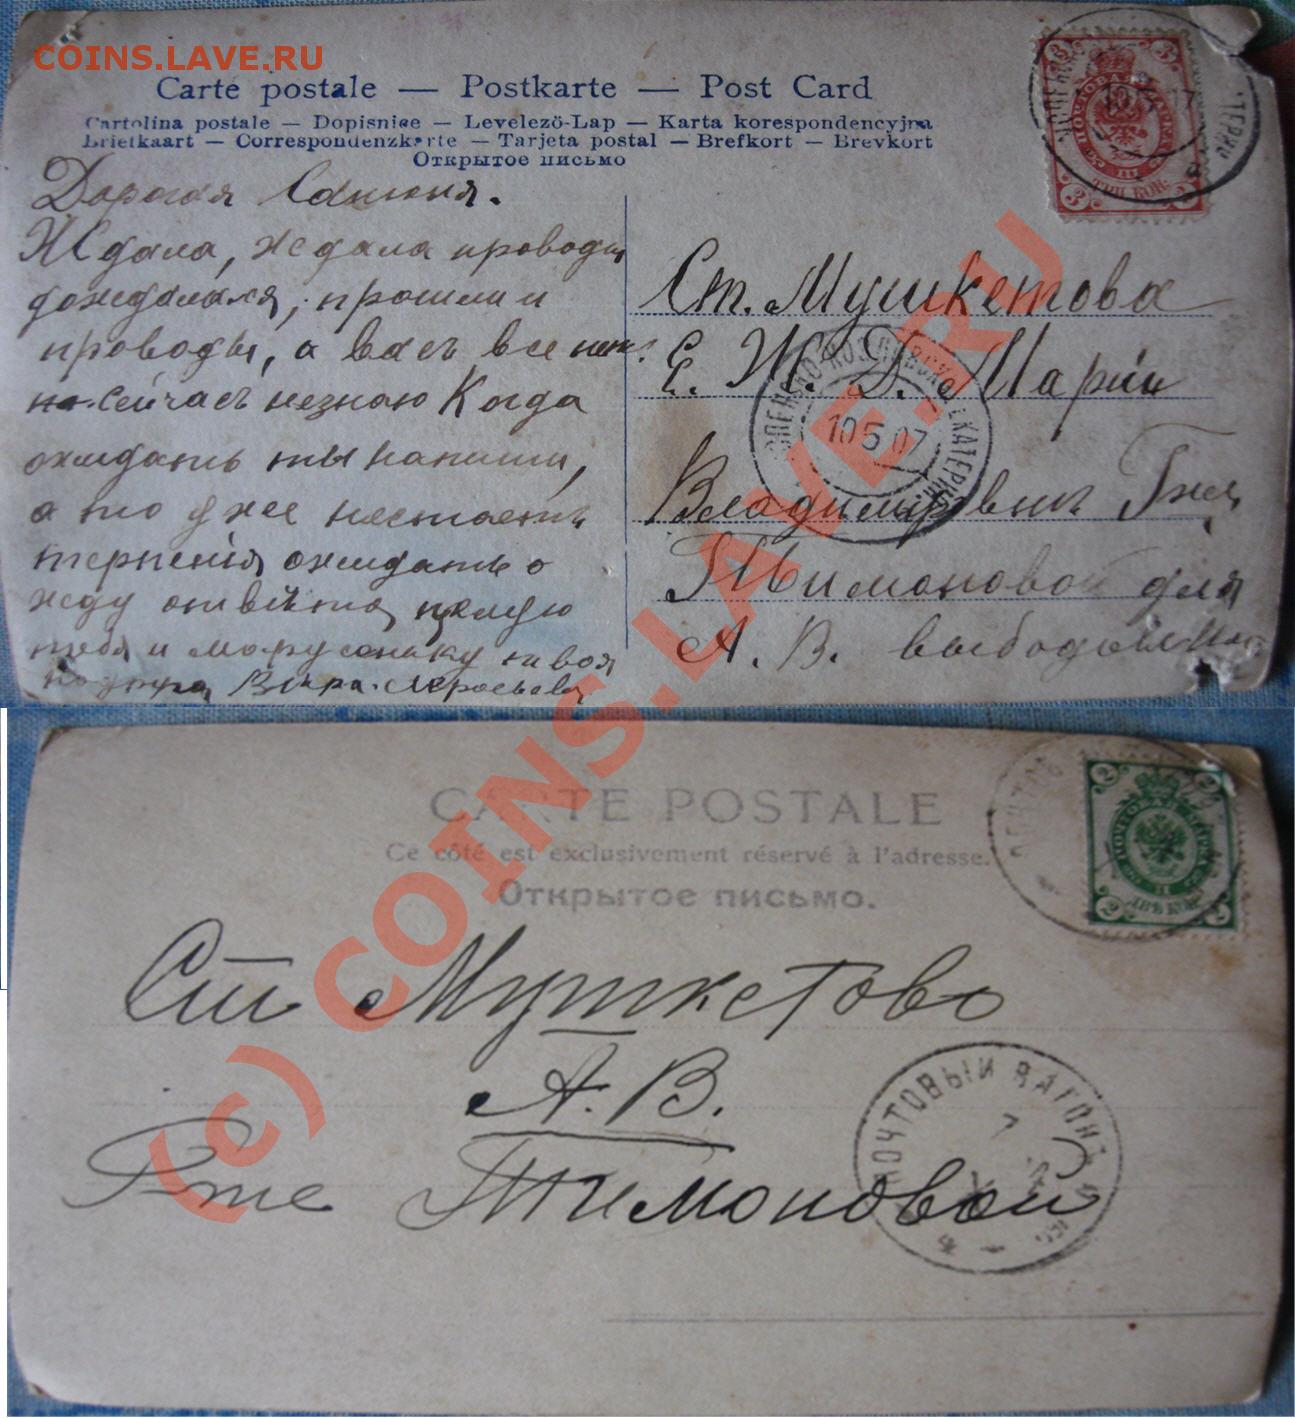 COINS.LAVE.RU
Carte postale — Postkarte — Post Card
Cartolina postale — Dopisnice — Levelező-Lap — Karta korespondencyjna
Briefkaart — Correspondenzkarte — Tarjeta postal — Brefkort — Brevkort
Открытое письмо
Дорогая
Ждала, ждала проводы
дождалася, прошли и
проводы, а васъ все нет
сейчасъ незнаю Когда
ожидать ты напиши,
а то уже нестаетъ
терпенiя ожидать о
жду ответа целую
тебя и марусеньку твоя
подруга Вера
Ст. Мушкетова
Е. Ж. Д. Марiи
Владимировне
Тимоновой для
А. В.
3 ПОЧТОВАЯ МАРКА 3
3 ТРИ КОП. 3
10 5 07
ЕКАТЕРИН
(c) COINS.LAVE.RU
CARTE POSTALE
Ce côté est exclusivement réservé à l'adresse.
Открытое письмо.
Ст Мушкетово
А. В.
Тимоновой
2 ПОЧТОВАЯ МАРКА 2
2 ДВѢ КОП. 2
ПОЧТОВЫЙ ВАГОНЪ